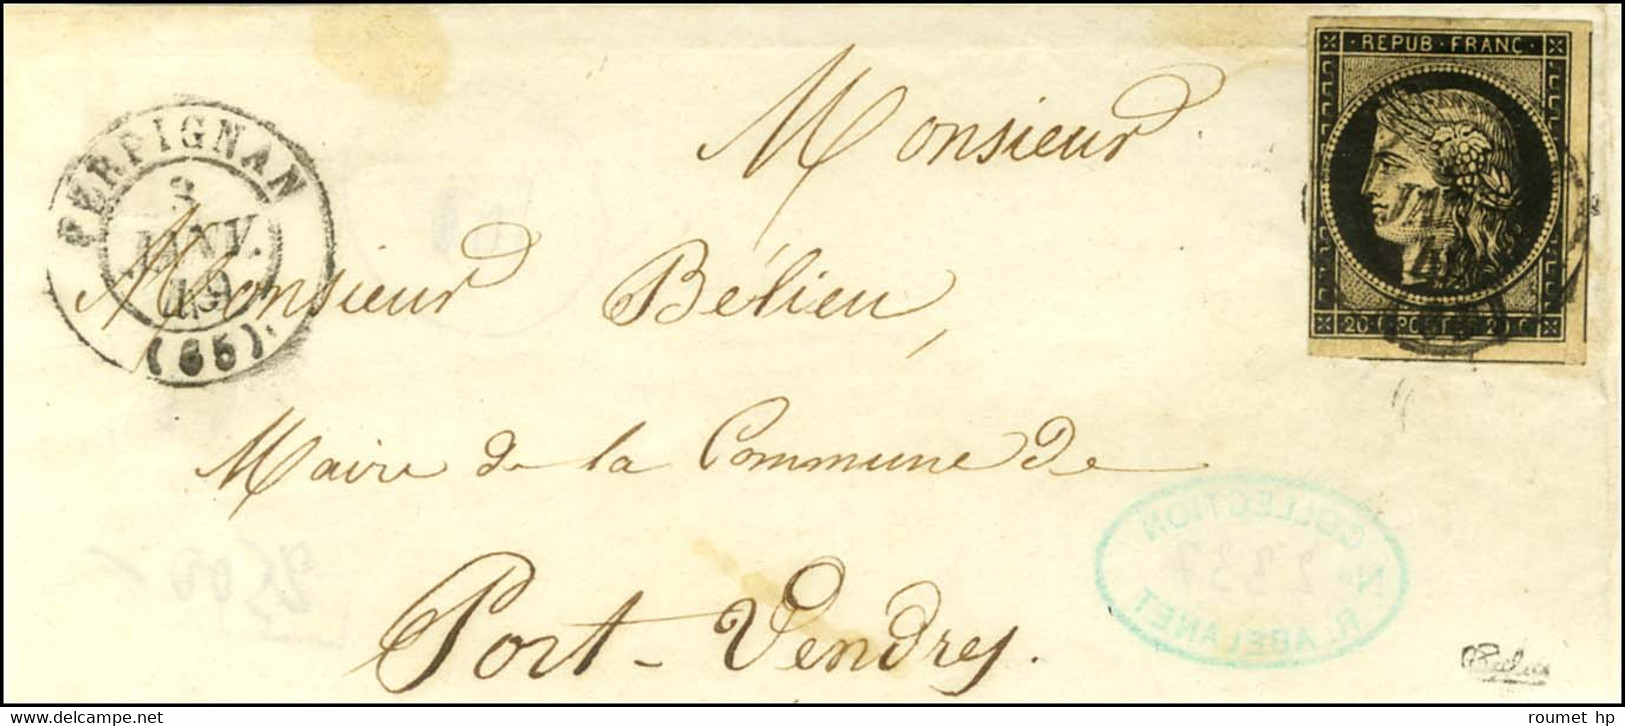 REPUB · FRANC ·
20 C POSTE 20 C
PERPIGNAN
3
JANV.
49
(65)
Monsieur
Monsieur Bélieu,
Maire de la Commune de
Port-Vendres.
COLLECTION
No 2337
R. ABELANET
2500
roumet hp